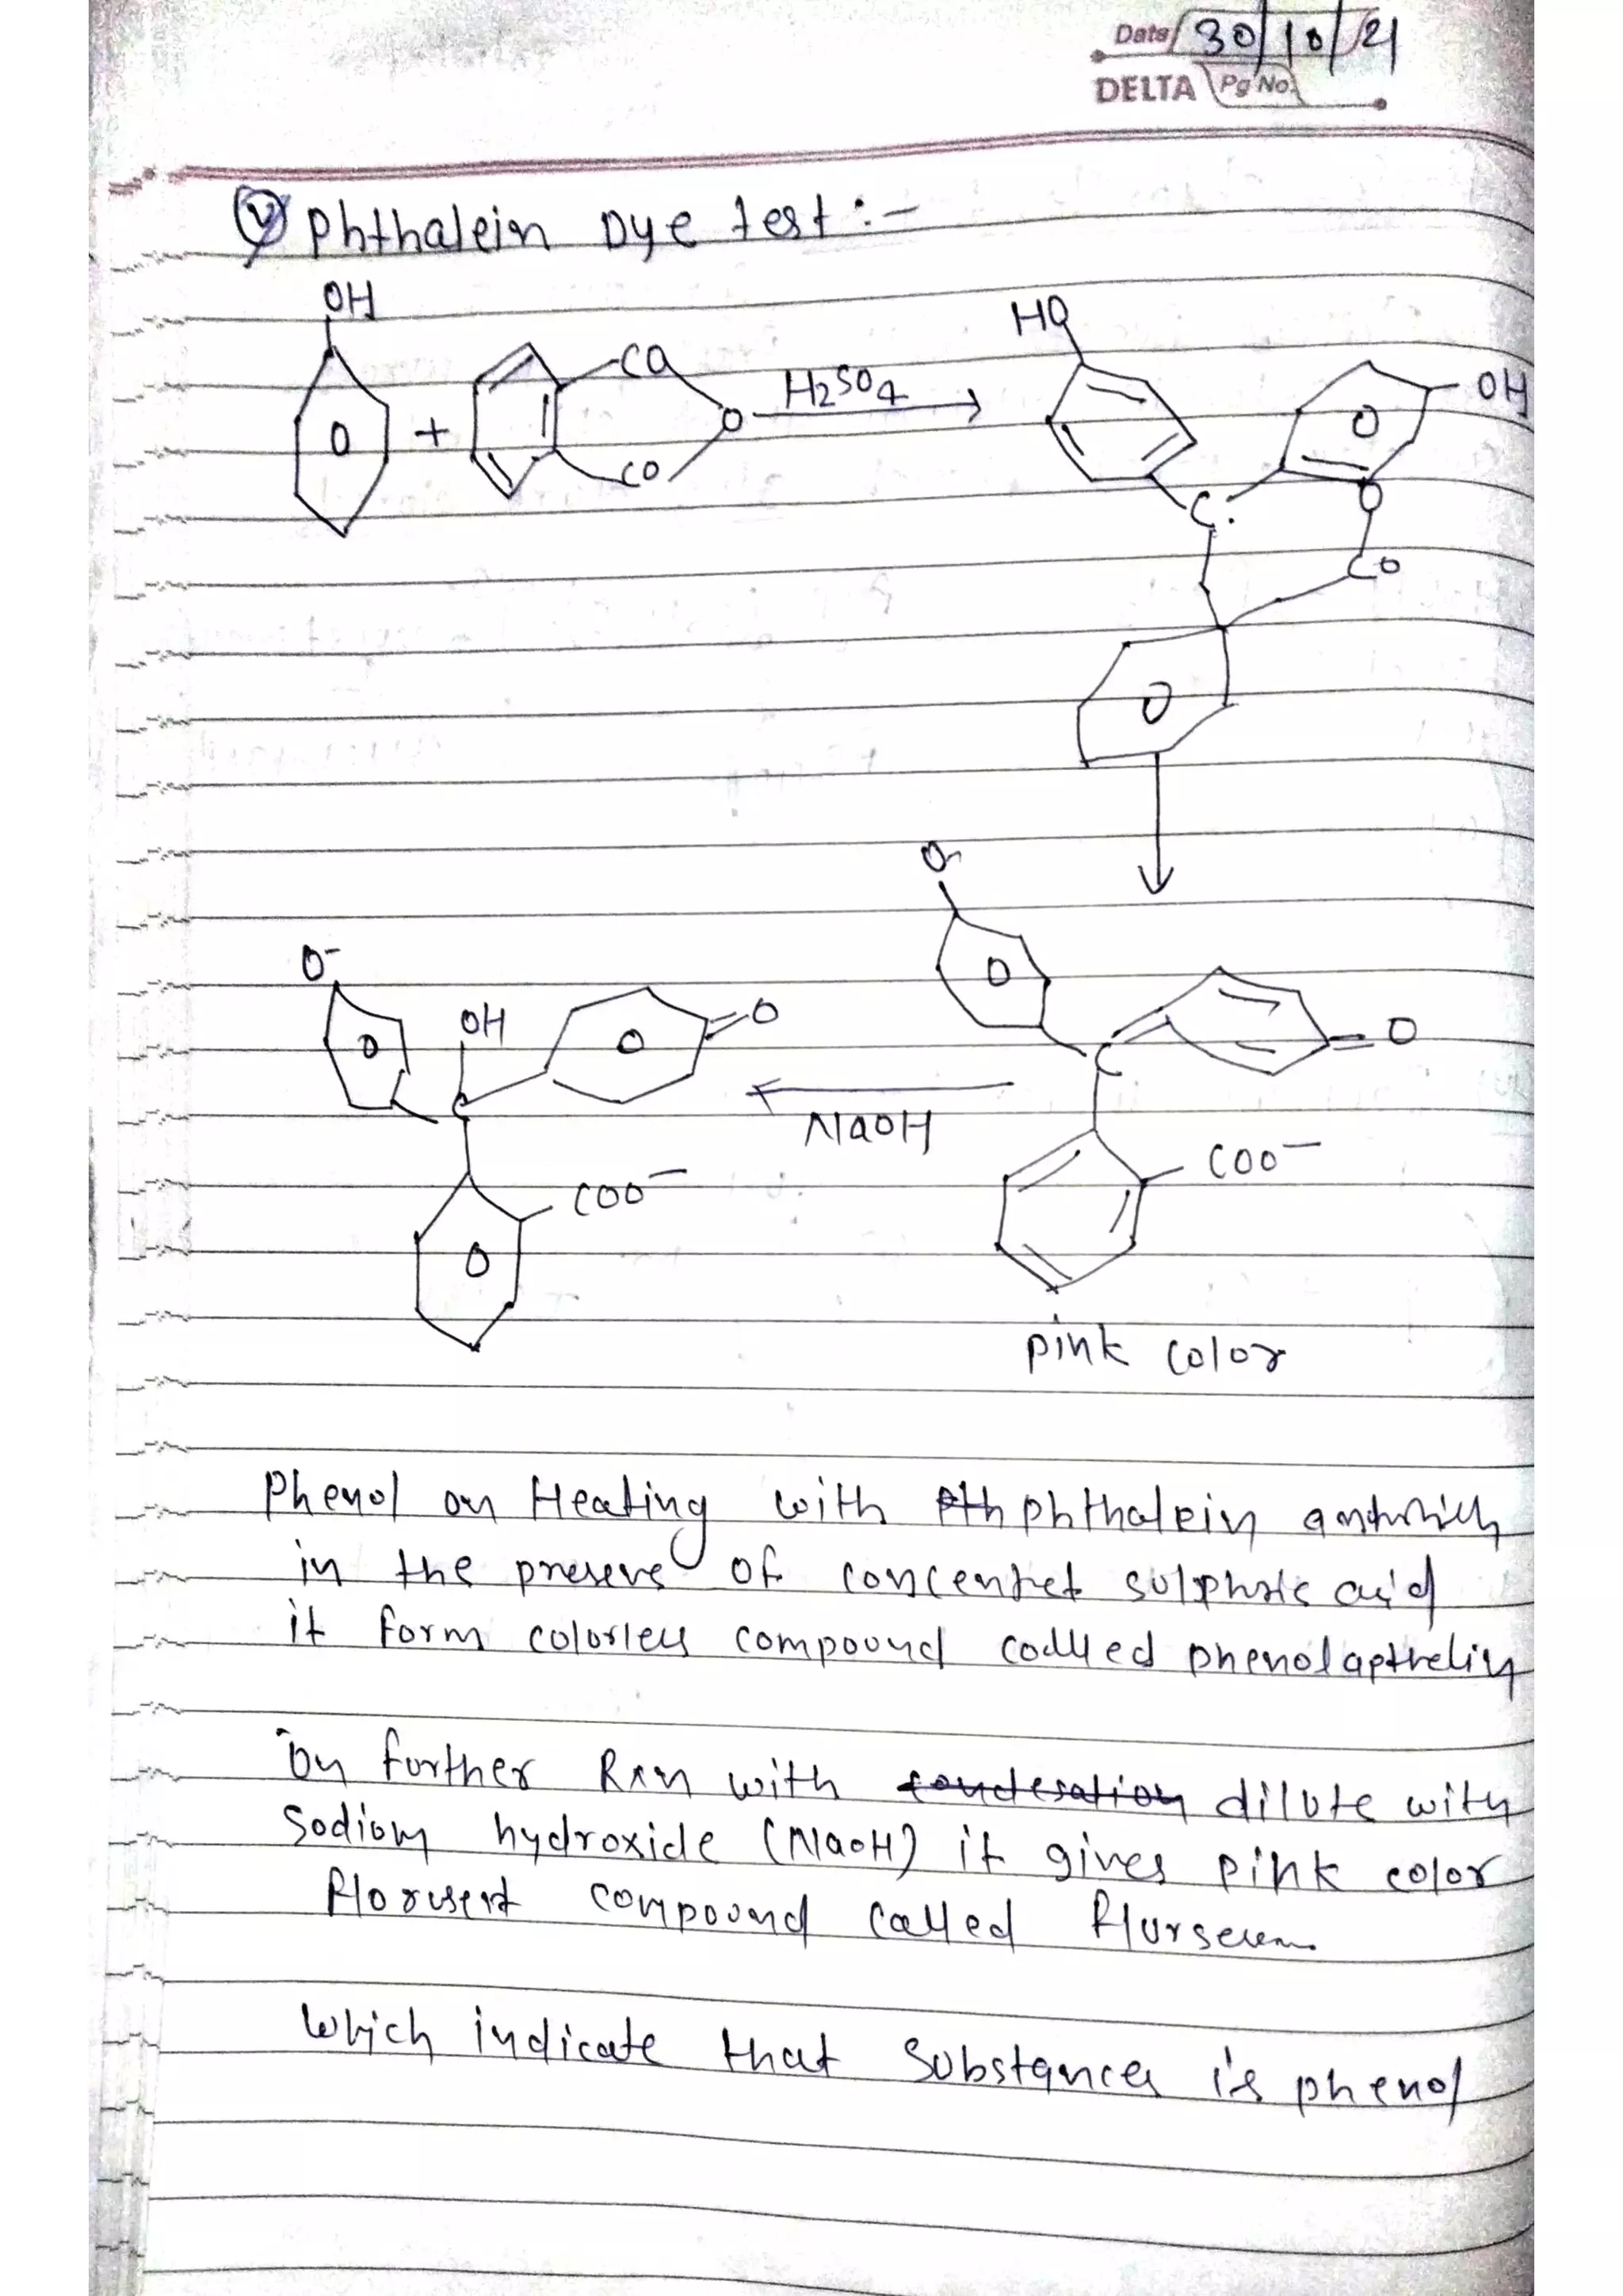 Date 30/10/21
DELTA Pg No.
Ⓥ Phthalein Dye test :-
OH
+
CO
O
CO
H2SO4
HO
OH
C
O
CO
O-
O
C
COO-
pink color
NaOH
O-
OH
O
C
COO-
Phenol on Heating with phthalein
in the presens of concentret sulphuric acid
it form colorless compound called phenolapthelin
on further Rxn with dilute with
Sodium hydroxide (NaOH) it gives pink color
compound called
Which indicate that Substances is phenol